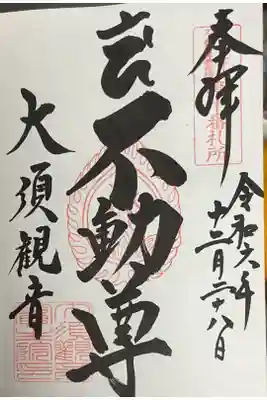 奉拝
令和六年
十二月二十八日
不動尊
大須観音